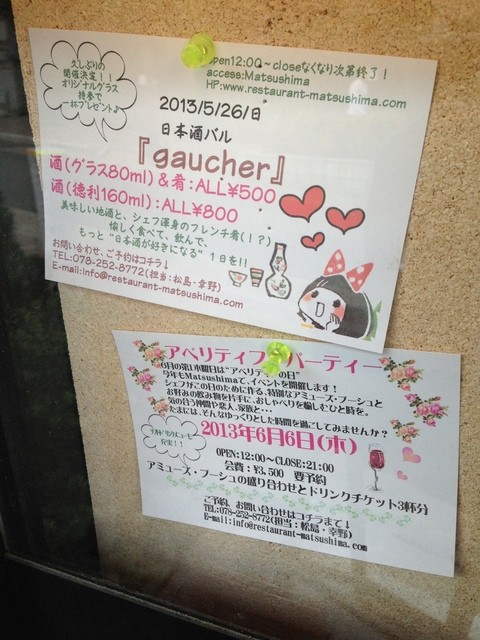 久しぶりの
開催決定！！
オリジナルグラス
持参で
一杯プレゼント♪
open12:00～closeなくなり次第終了！
access:Matsushima
HP:www.restaurant-matsushima.com
2013/5/26/日
日本酒バル
『gaucher』
酒(グラス80ml)＆肴:ALL¥500
酒(徳利160ml):ALL¥800
美味しい地酒と、シェフ渾身のフレンチ肴(！?)
愉しく食べて、飲んで、
もっと"日本酒が好きになる"1日を!!
お問い合わせ、ご予約はコチラ↓
TEL:078-252-8772(担当:松島・幸野)
E-mail:info@restaurant-matsushima.com
アペリティフ パーティー
6月の第1木曜日は"アペリティフの日"
今年もMatsushimaで、イベントを開催します！
シェフがこの日のために作る、特別なアミューズ・ブーシュと
お好みの飲み物を片手に、おしゃべりを愉しむひと時を。
気の合う仲間や恋人、家族と・・・
たまには、そんなゆっくりとした時間を過ごしてみませんか？
充実！！
2013年6月6日(木)
OPEN:12:00～CLOSE:21:00
会費:¥3,500 要予約
アミューズ・ブーシュの盛り合わせとドリンクチケット3杯分
ご予約、お問い合わせはコチラまで↓
TEL:078-252-8772(担当:松島・幸野)
E-mail:info@restaurant-matsushima.com